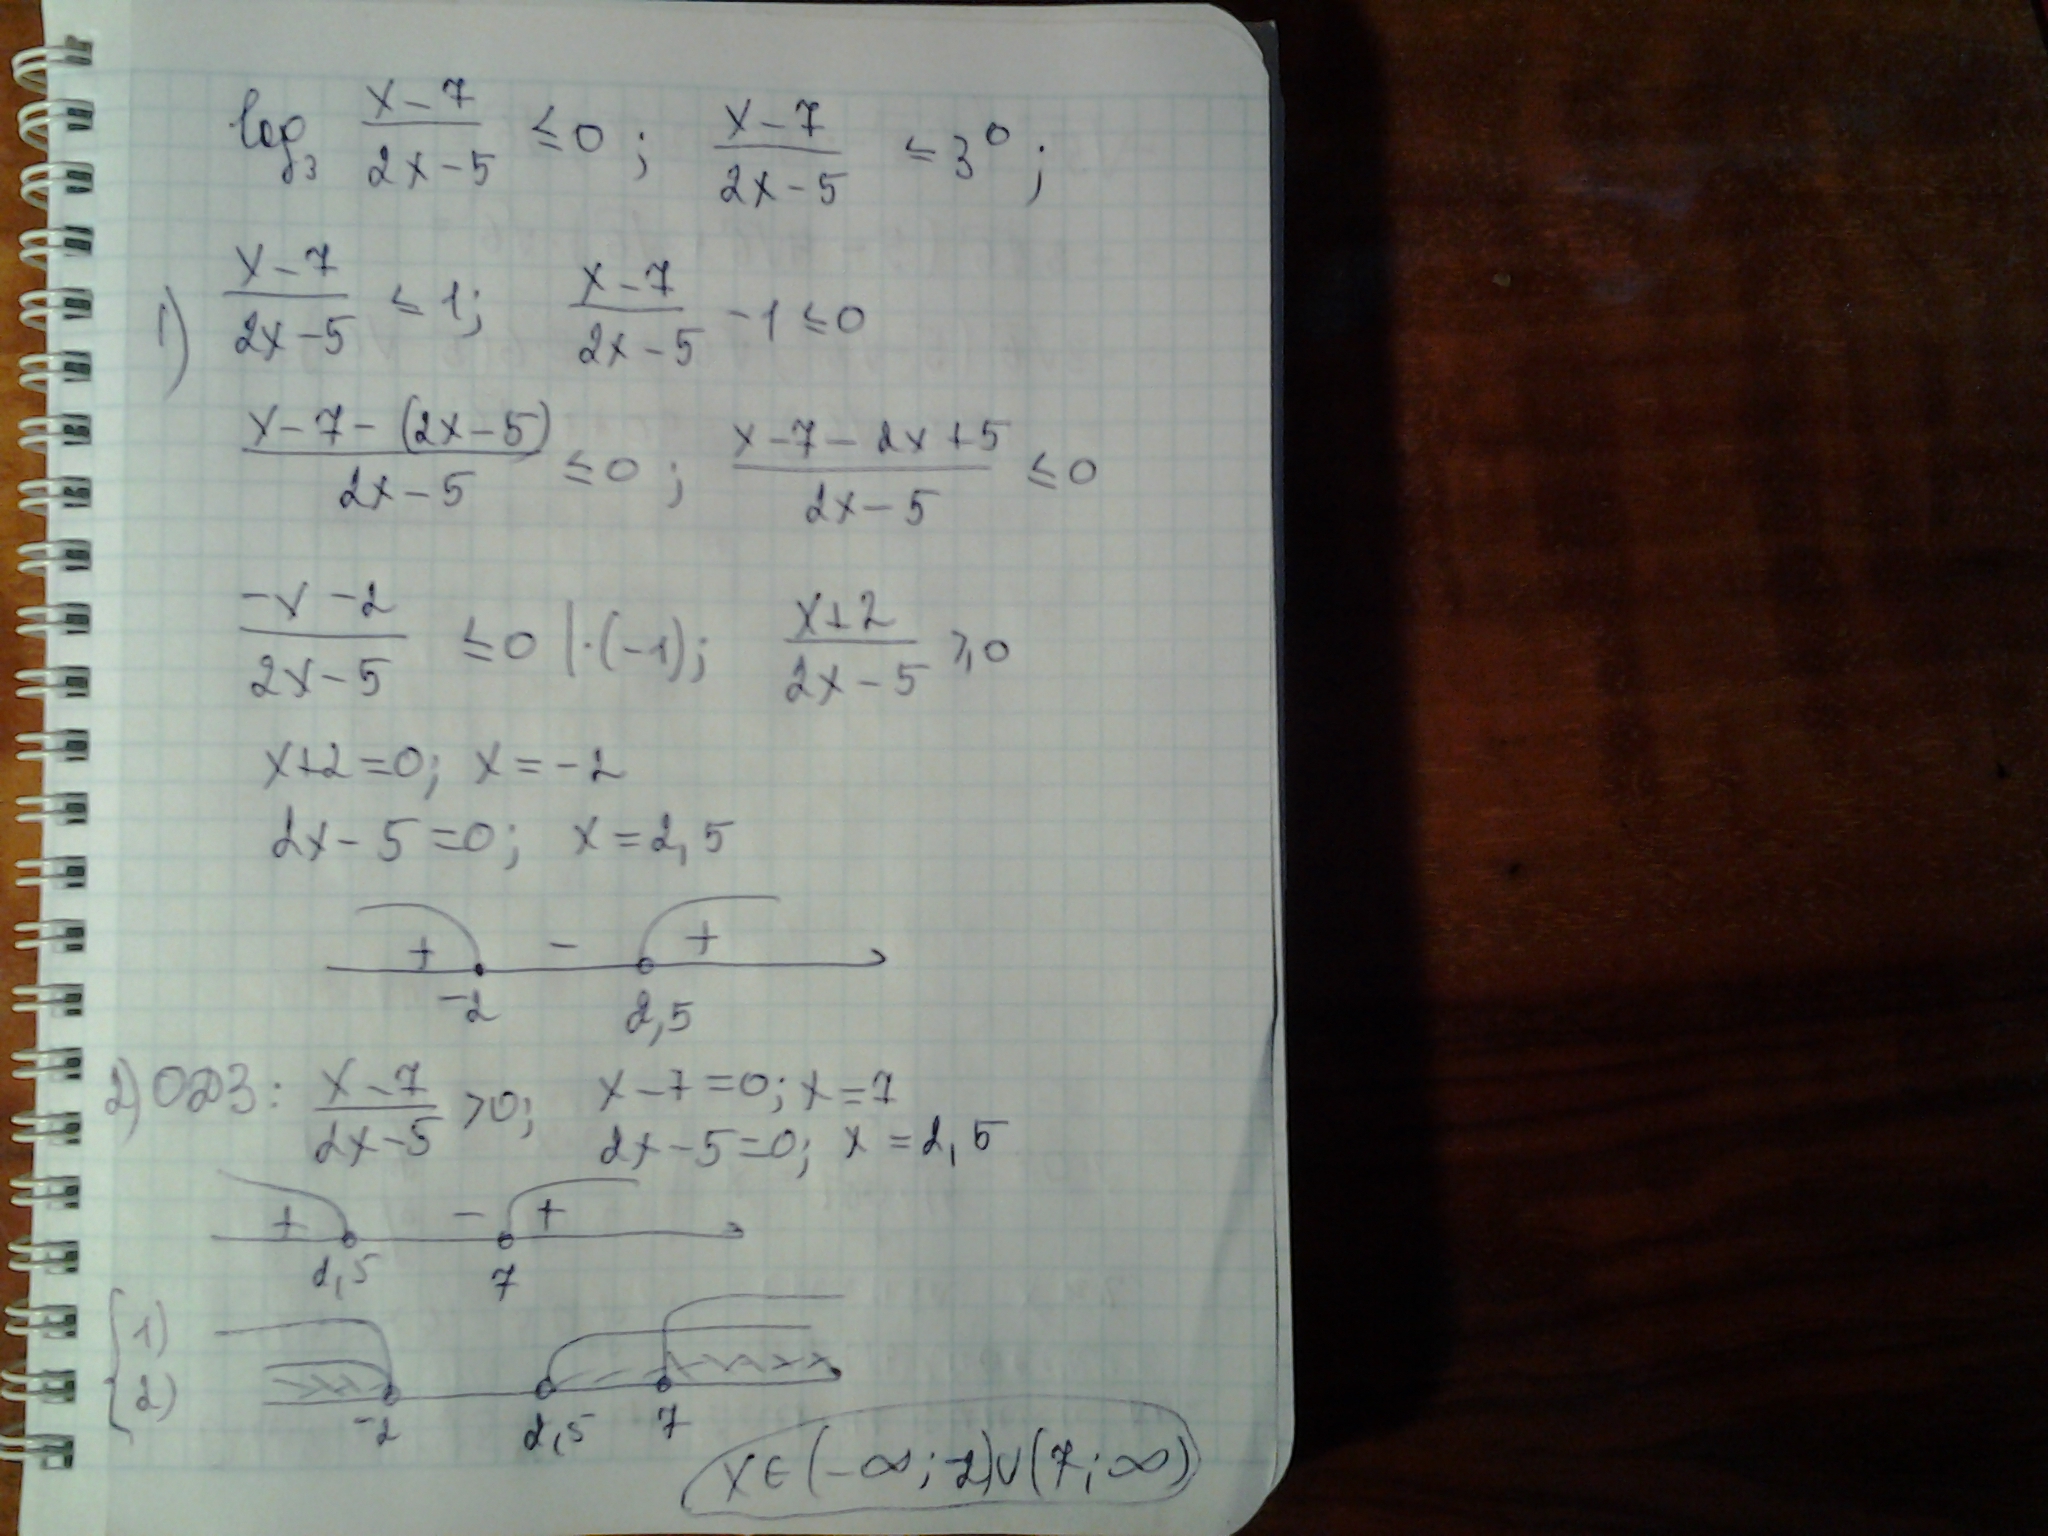 log₃ (x-7)/(2x-5) ≤ 0; (x-7)/(2x-5) ≤ 3⁰;
1) (x-7)/(2x-5) ≤ 1; (x-7)/(2x-5) - 1 ≤ 0
(x-7-(2x-5))/(2x-5) ≤ 0; (x-7-2x+5)/(2x-5) ≤ 0
(-x-2)/(2x-5) ≤ 0 |·(-1); (x+2)/(2x-5) ≥ 0
x+2=0; x=-2
2x-5=0; x=2,5
+ - +
-2 2,5
2) ОДЗ: (x-7)/(2x-5) >0; x-7=0; x=7
2x-5=0; x=2,5
+ - +
2,5 7
{ 1)
2)
-2 2,5 7
x∈(-∞;-2)∪(7;∞)